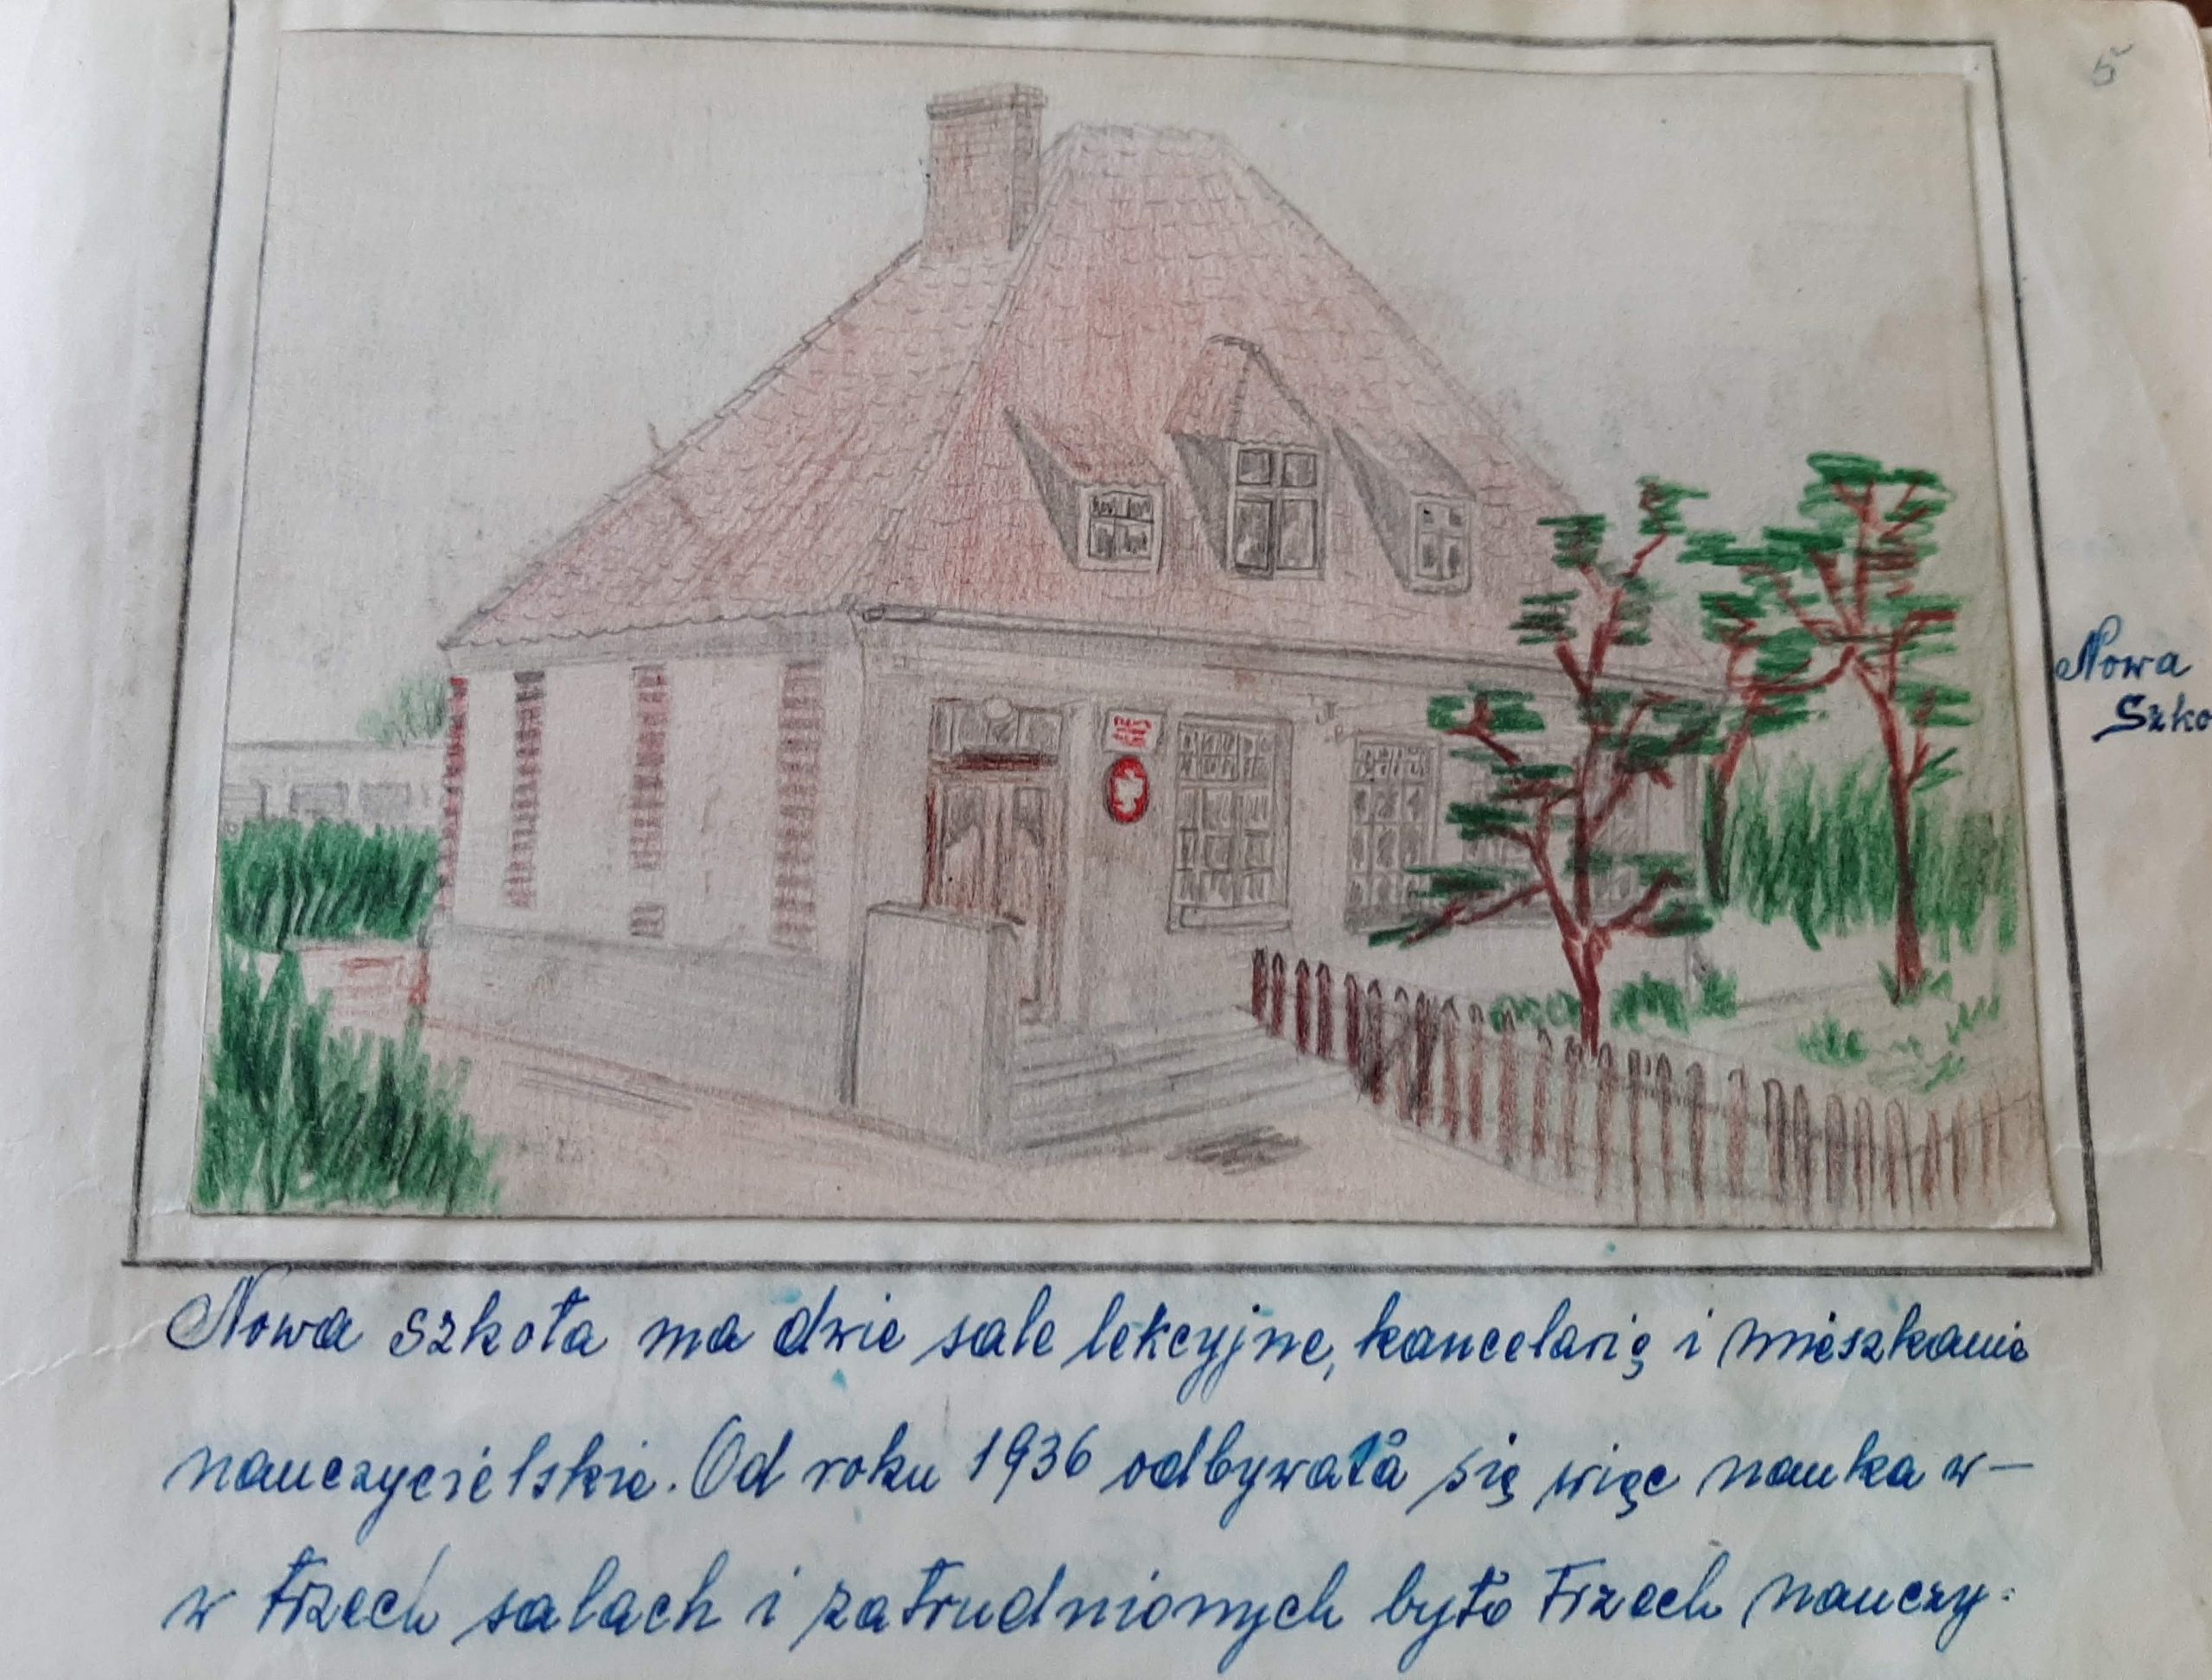 5
Nowa
Szko
Nowa szkoła ma dwie sale lekcyjne, kancelarię i mieszkanie
nauczycielskie. Od roku 1936 odbywała się więc nauka w—
w trzech salach i zatrudnionych było trzech nauczy-